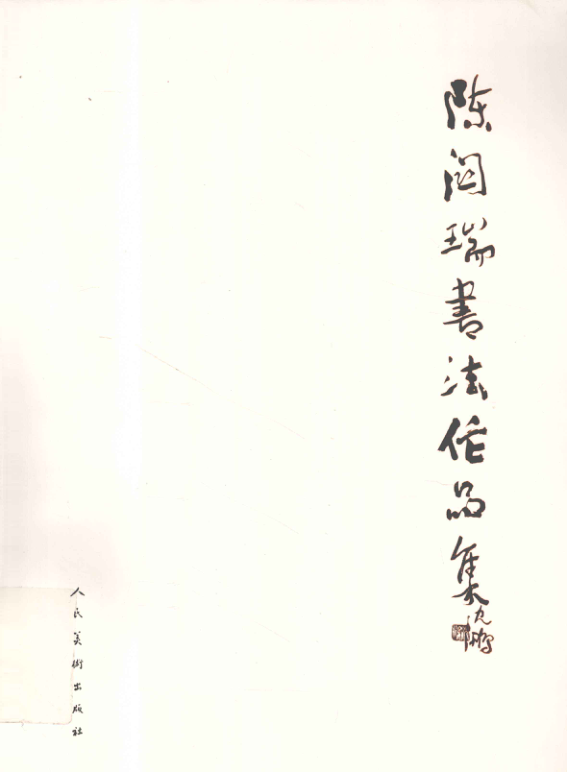 陈洪瑞書法作品集
沈鹏
人民美術出版社